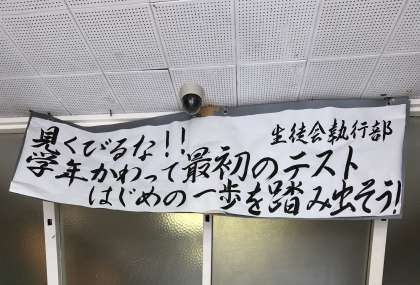 見くびるな!!
生徒会執行部
学年かわって最初のテスト
はじめの一歩を踏み出そう!